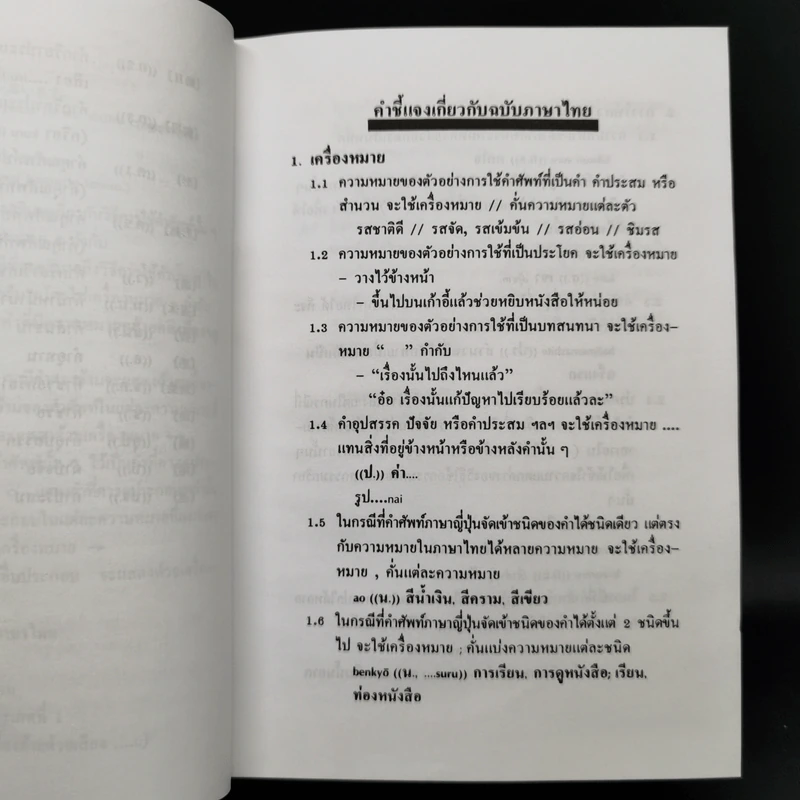 คำชี้แจงเกี่ยวกับฉบับภาษาไทย
1. เครื่องหมาย
1.1 ความหมายของตัวอย่างการใช้คำศัพท์ที่เป็นคำ คำประสม หรือ
สำนวน จะใช้เครื่องหมาย // คั่นความหมายแต่ละตัว
รสชาติดี // รสจัด, รสเข้มข้น // รสอ่อน // ชิมรส
1.2 ความหมายของตัวอย่างการใช้ที่เป็นประโยค จะใช้เครื่องหมาย
– วางไว้ข้างหน้า
– ขึ้นไปบนเก้าอี้แล้วช่วยหยิบหนังสือให้หน่อย
1.3 ความหมายของตัวอย่างการใช้ที่เป็นบทสนทนา จะใช้เครื่อง–
หมาย “ ” กำกับ
– “เรื่องนั้นไปถึงไหนแล้ว”
“อ๋อ เรื่องนั้นแก้ปัญหาไปเรียบร้อยแล้วละ”
1.4 คำอุปสรรค ปัจจัย หรือคำประสม ฯลฯ จะใช้เครื่องหมาย ....
แทนสิ่งที่อยู่ข้างหน้าหรือข้างหลังคำนั้น ๆ
((ป.)) ค่ำ....
รูป....nai
1.5 ในกรณีที่คำศัพท์ภาษาญี่ปุ่นจัดเข้าชนิดของคำได้ชนิดเดียว แต่ตรง
กับความหมายในภาษาไทยได้หลายความหมาย จะใช้เครื่อง–
หมาย , คั่นแต่ละความหมาย
ao ((น.)) สีน้ำเงิน, สีคราม, สีเขียว
1.6 ในกรณีที่คำศัพท์ภาษาญี่ปุ่นจัดเข้าชนิดของคำได้ตั้งแต่ 2 ชนิดขึ้น
ไป จะใช้เครื่องหมาย ; คั่นแบ่งความหมายแต่ละชนิด
benkyō ((น., ....suru)) การเรียน, การดูหนังสือ; เรียน,
ท่องหนังสือ